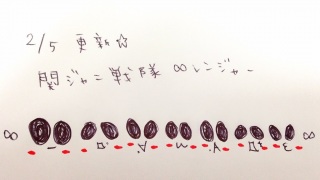 2/5 更新☆
関ジャニ戦隊 ∞レンジャー
∞ ∞